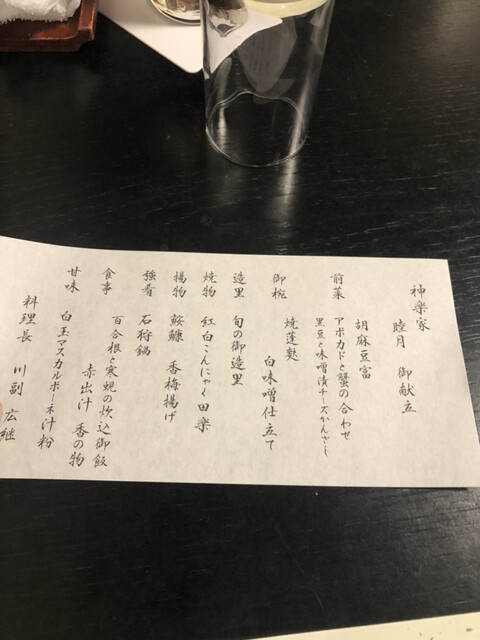 神樂家
睦月 御献立
胡麻豆富
前菜 アボカドと蟹の合わせ
黒豆と味噌漬チーズかんざし
焼蓬麩
御椀 白味噌仕立て
造里 旬の御造里
焼物 紅白こんにゃく田楽
揚物 鮟鱇 香梅揚げ
強肴 石狩鍋
食事 百合根と寒蜆の炊込御飯
赤出汁 香の物
甘味 白玉マスカルポーネ汁粉
料理長 川副 広継